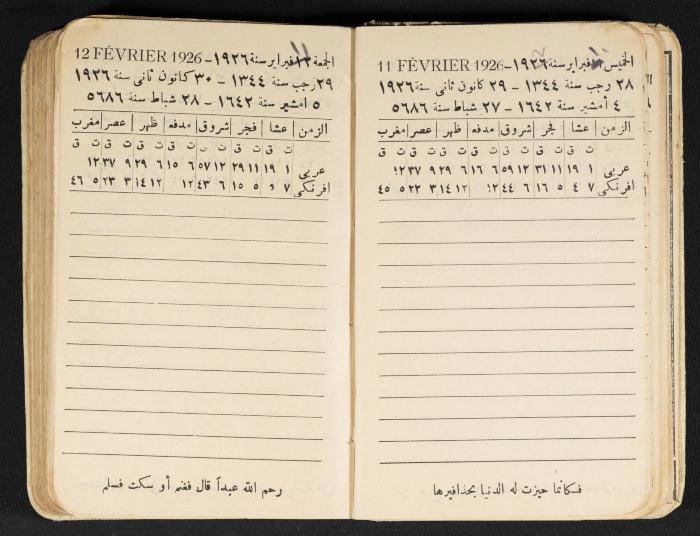 الخميس فبراير سنة ١٩٢٦ - 11 FÉVRIER 1926
٢٨ رجب سنة ١٣٤٤ - ٢٩ كانون ثانى سنة ١٩٢٦
٤ أمشير سنة ١٦٤٢ - ٢٧ شباط سنة ٥٦٨٦
الزمن عشا فجر شروق مدفع ظهر عصر مغرب
ت ق ت ق ت ق ت ق ت ق ت ق ت ق
عربي ١ ١٩ ١١ ٣١ ١٢ ٥٩ ٦ ١٦ ٦ ٢٩ ٩ ٣٧ ١٢
افرنكى ٧ ٤ ٥ ١٦ ٦ ٤٤ ١٢ ١٢ ١٤ ٣ ٢٢ ٥ ٤٥
فكانما حيزت له الدنيا بحذافيرها
الجمعة فبراير سنة ١٩٢٦ - 12 FÉVRIER 1926
٢٩ رجب سنة ١٣٤٤ - ٣٠ كانون ثانى سنة ١٩٢٦
٥ امشير سنة ١٦٤٢ - ٢٨ شباط سنة ٥٦٨٦
الزمن عشا فجر شروق مدفع ظهر عصر مغرب
ت ق ت ق ت ق ت ق ت ق ت ق ت ق
عربي ١ ١٩ ١١ ٢٩ ١٢ ٥٧ ٦ ١٥ ٦ ٢٩ ٩ ٣٧ ١٢
افرنكى ٧ ٥ ١٥ ٦ ٤٣ ١٢ ١٢ ١٤ ٣ ٢٣ ٥ ٤٦
رحم الله عبداً قال فغنم أو سكت فسلم